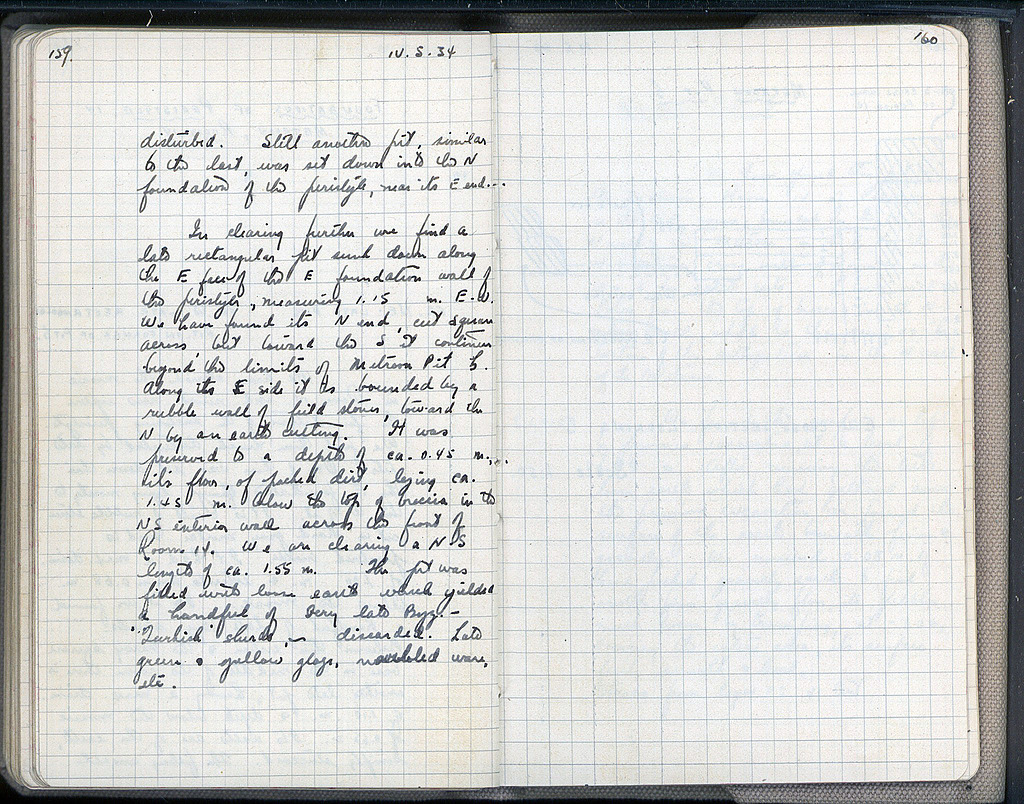 159.
IV. 5. 34
disturbed. Still another pit, similar
to the last, was set down into the N
foundation of the peristyle, near its E end.
In clearing further we find a
late rectangular pit sunk down along
the E face of the E foundation wall of
the peristyle, measuring 1.15 m. E-W.
We have found its N end, cut square
across, but toward the S it continues
beyond the limits of Metroon Pit
Along its E side it is bounded by a
rubble wall of field stones, toward the
N by an earth cutting. It was
preserved to a depth of ca. 0.45 m.,
its floor, of packed dirt, lying ca.
m. below the top of breccia in the
NS interior wall across the front of
Room 14. We are clearing a N-S
length of ca. 1.55 m. The pit was
filled with loose earth which yielded
a handful of very late Byz.-
"Turkish" sherds, – discarded. Late
green & yellow glaze, marbled ware,
etc.
160